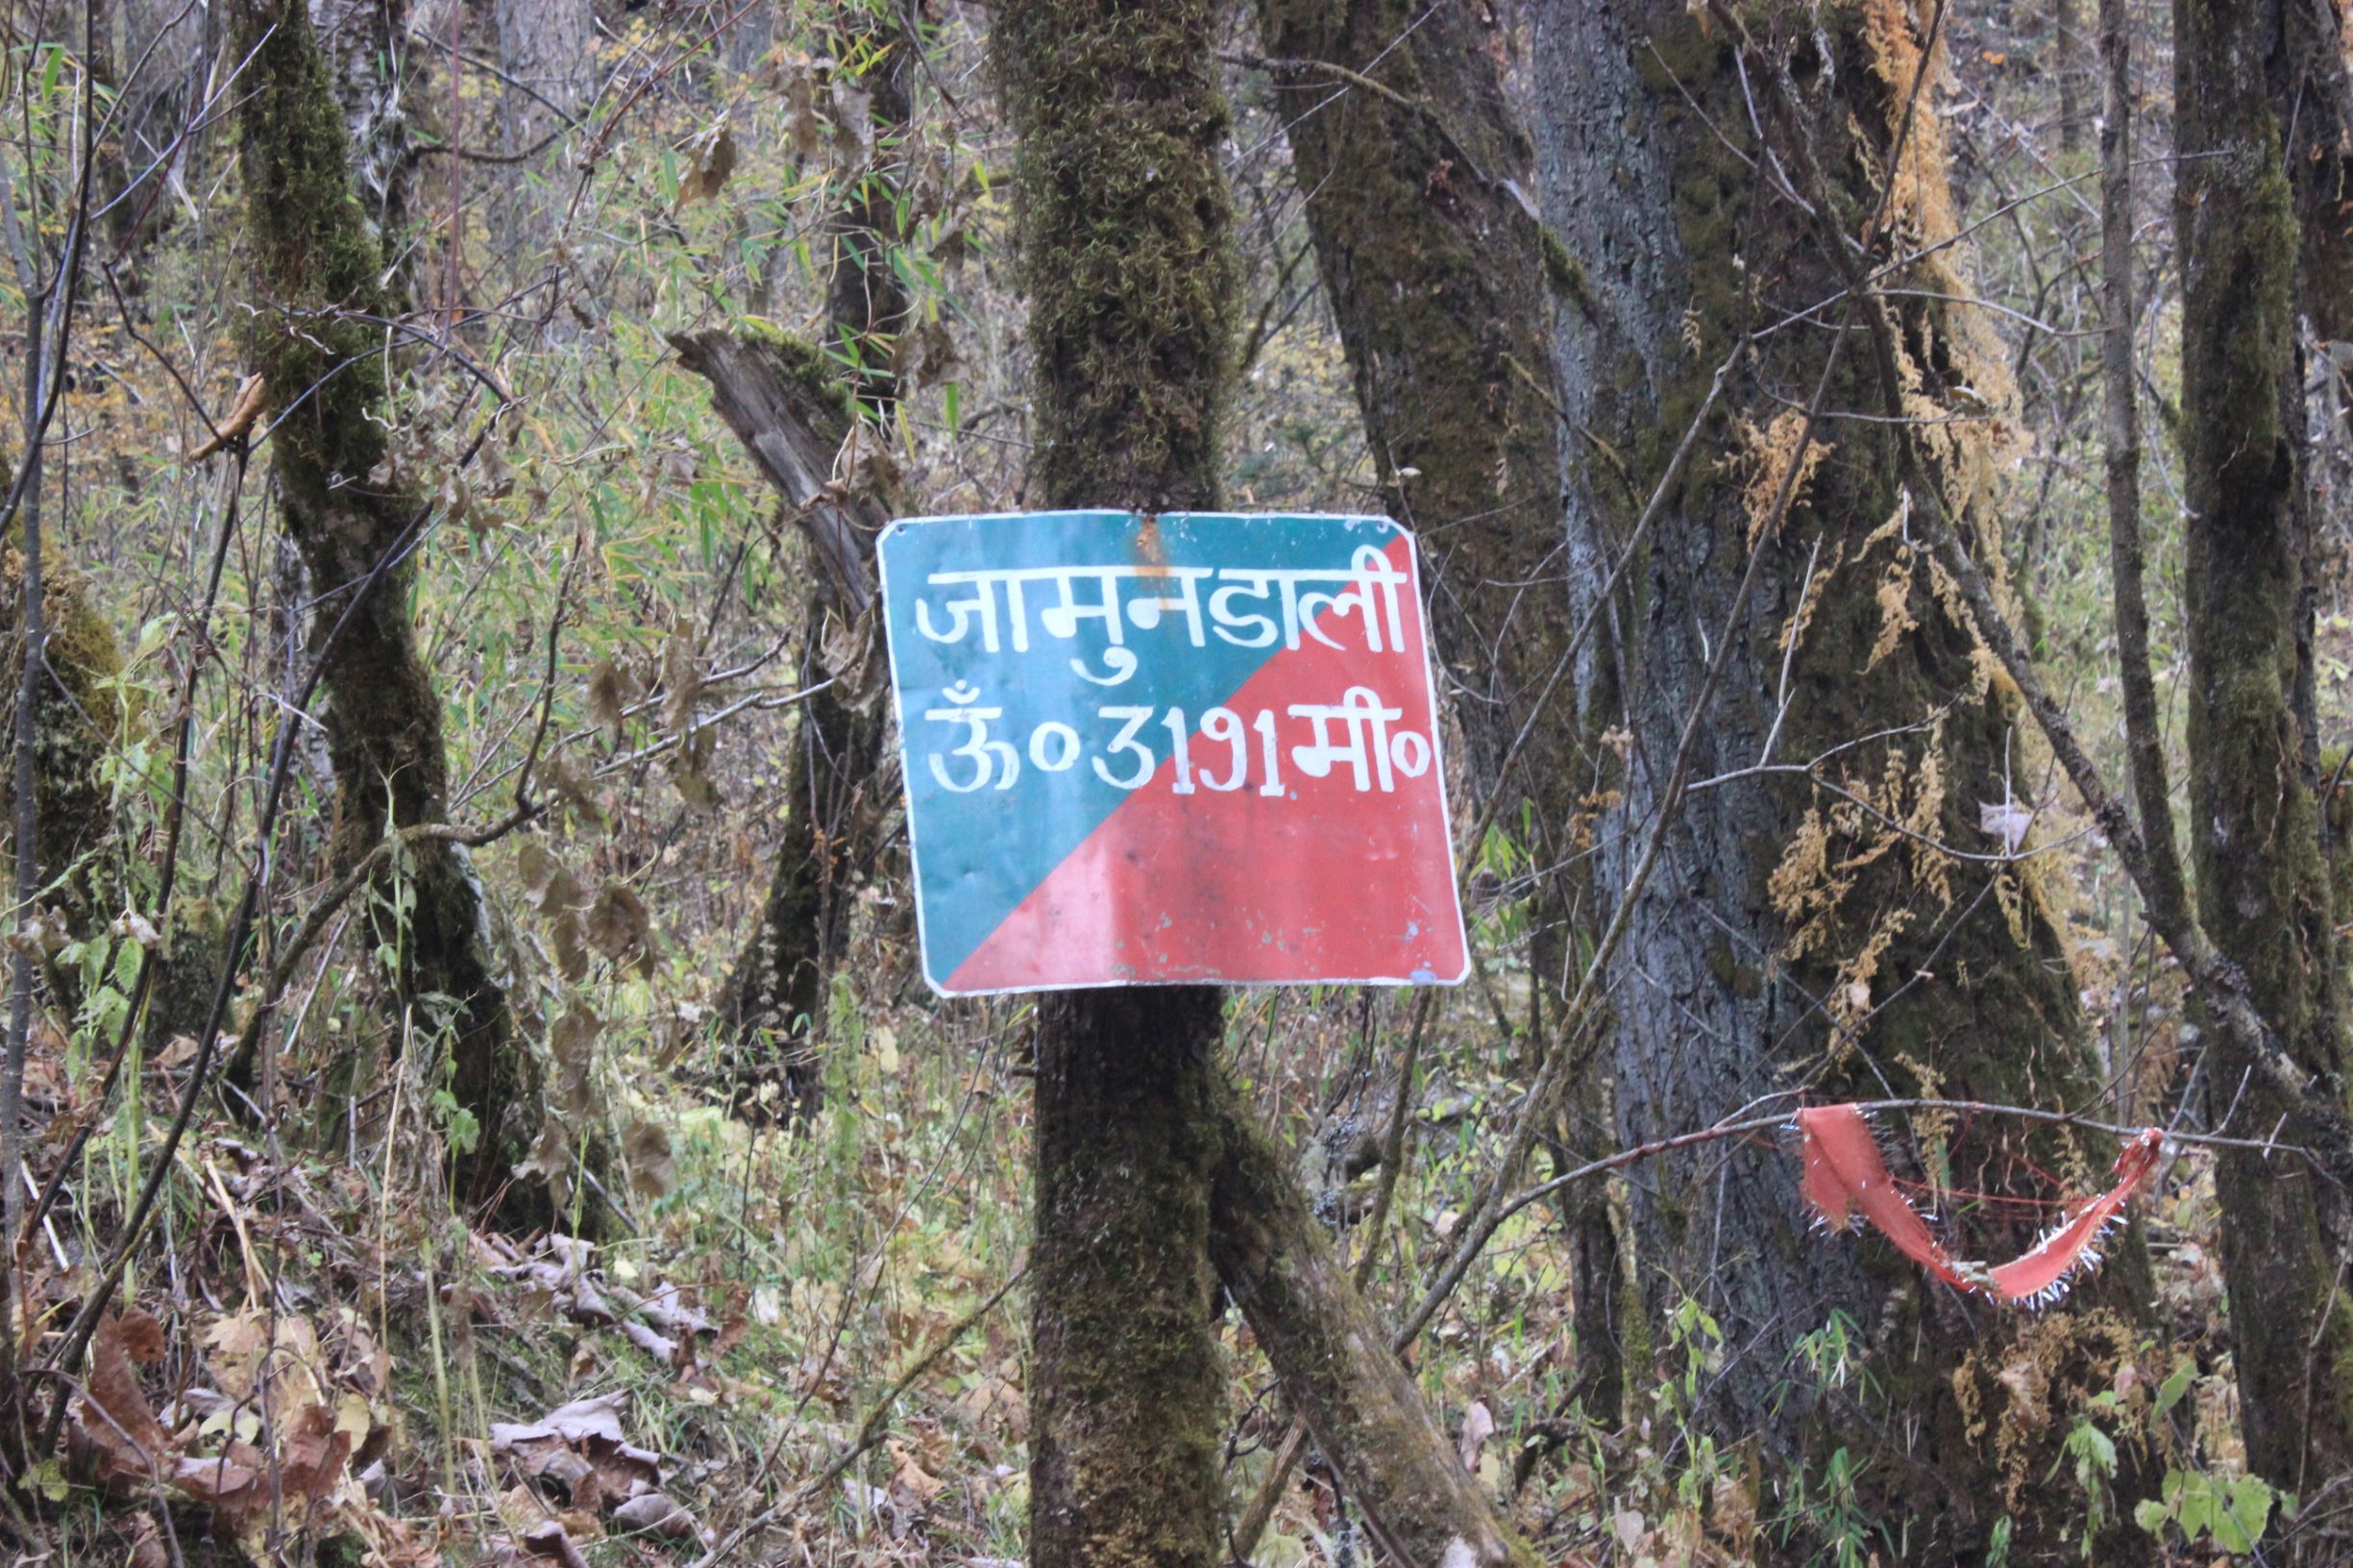 जामुनडाली
ऊँ॰ 3191 मी॰